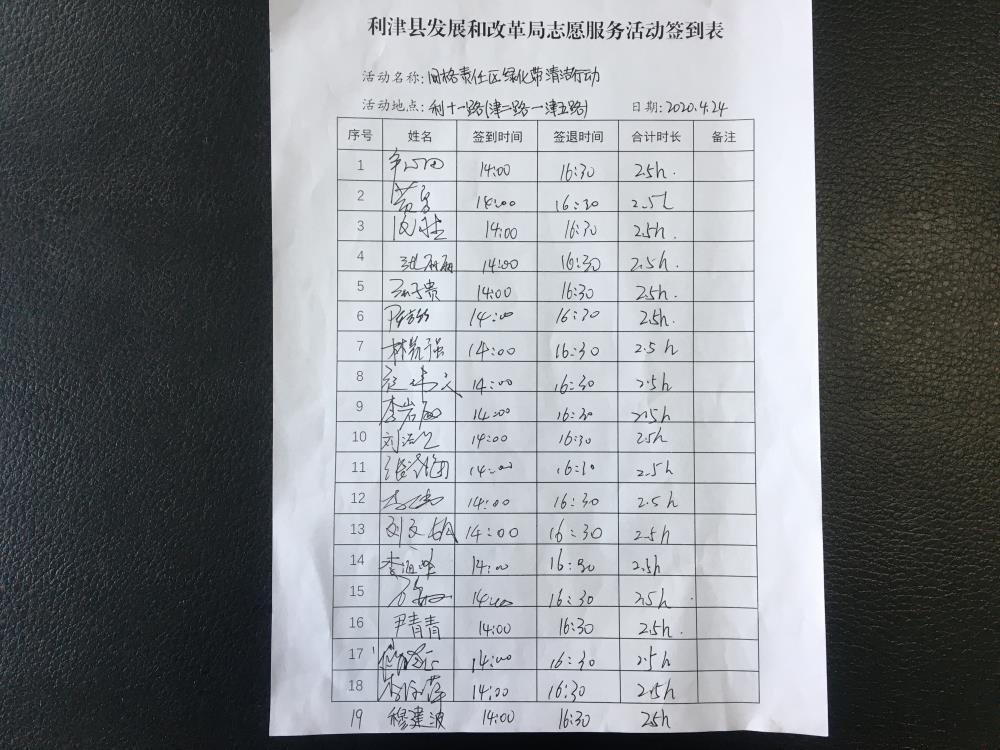 利津县发展和改革局志愿服务活动签到表
活动名称: 网格责任区绿化带清洁行动
活动地点: 利十一路(津二路一津五路) 日期: 2020.4.24
序号 姓名 签到时间 签退时间 合计时长 备注
1 14:00 16:30 2.5h.
2 14:00 16:30 2.5h
3 14:00 16:30 2.5h.
4 14:00 16:30 2.5h.
5 14:00 16:30 2.5h.
6 14:00 16:30 2.5h.
7 14:00 16:30 2.5h
8 14:00 16:30 2.5h
9 李岩 14:00 16:30 2.5h
10 14:00 16:30 2.5h
11 14:00 16:30 2.5h
12 14:00 16:30 2.5h
13 刘文 14:00 16:30 2.5h
14 14:00 16:30 2.5h
15 14:00 16:30 2.5h
16 尹青青 14:00 16:30 2.5h.
17 14:00 16:30 2.5h
18 14:00 16:30 2.5h
19 穆建波 14:00 16:30 2.5h